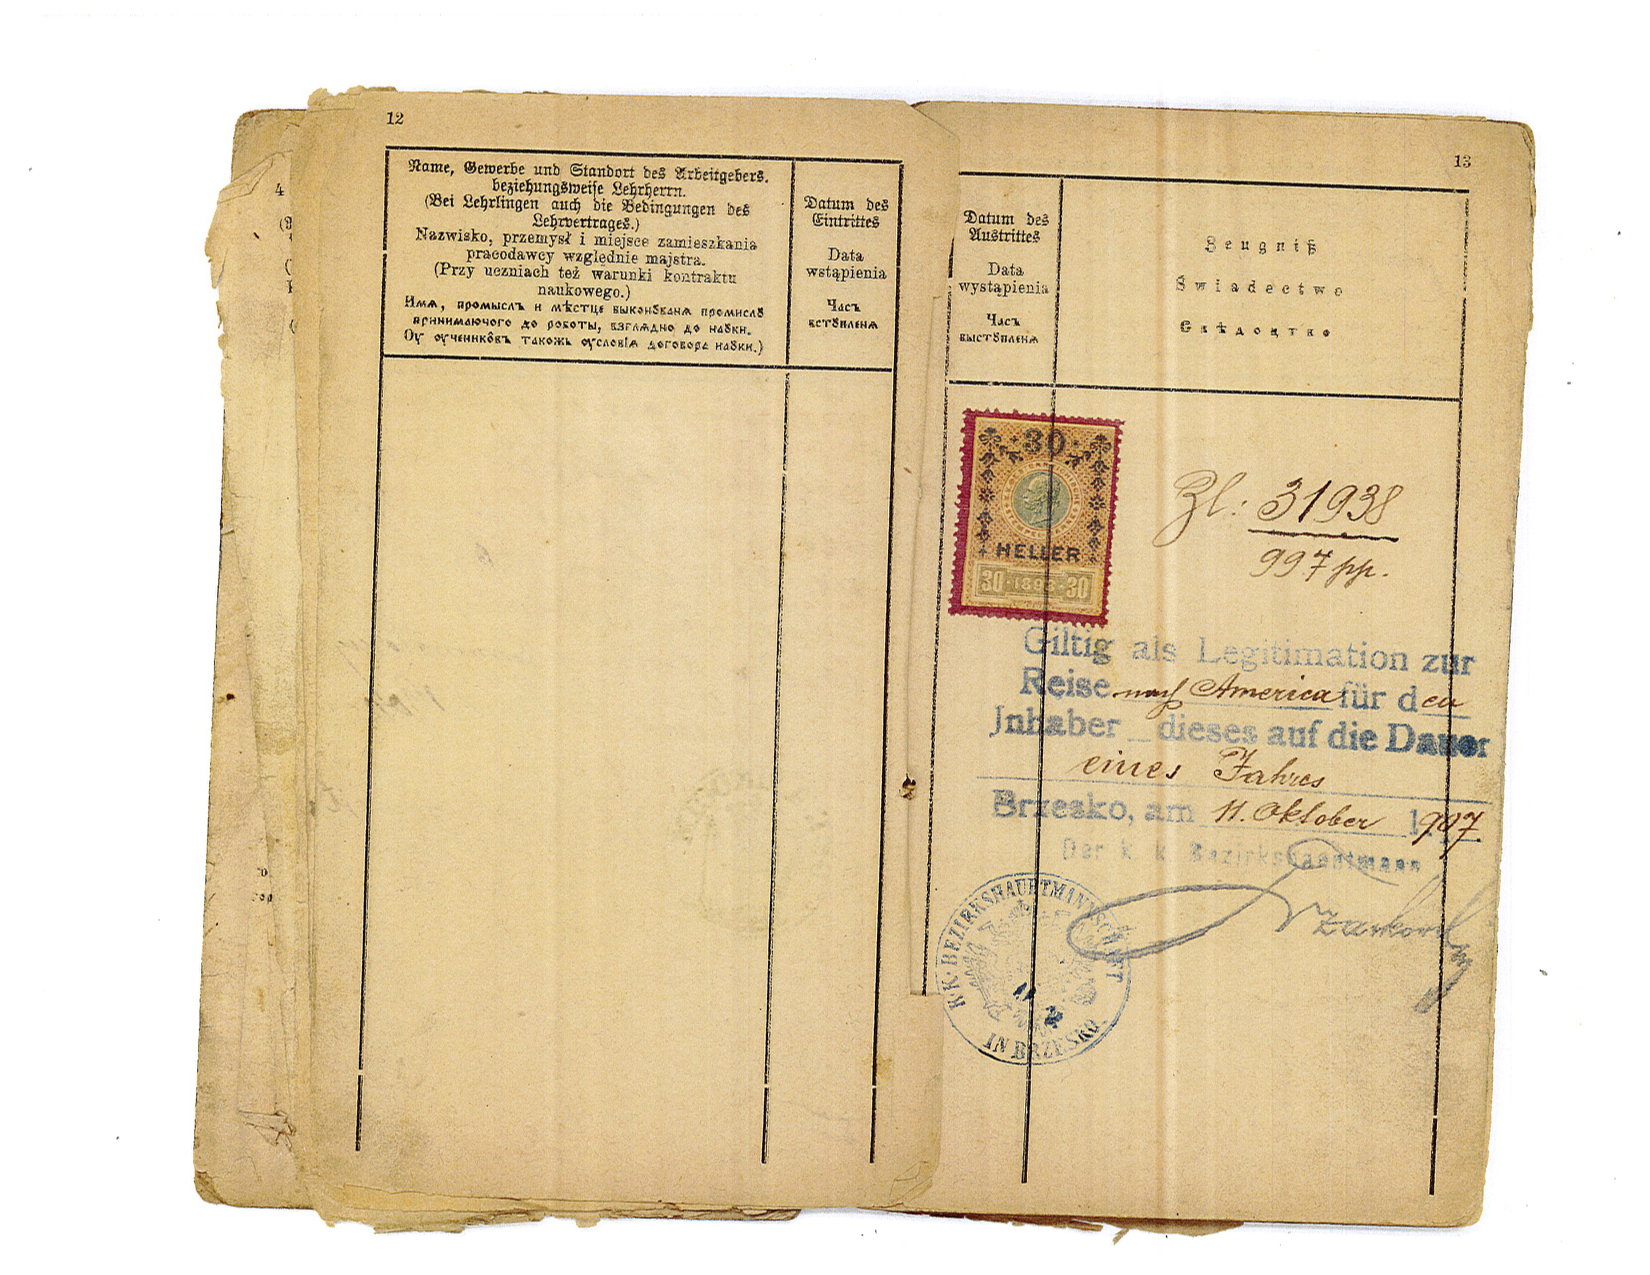 12
Name, Gewerbe und Standort des Arbeitgebers,
beziehungsweise Lehrherrn.
(Bei Lehrlingen auch die Bedingungen des
Lehrvertrages.)
Nazwisko, przemysł i miejsce zamieszkania
pracodawcy względnie majstra.
(Przy uczniach też warunki kontraktu
naukowego.)
Имѧ, промыслъ и мѣстце выконꙋванѧ промислꙋ
принимаючого до роботы, взглѧдно до наꙋки.
Оу оучеників такожь оусловіѧ договора наꙋки.)
Datum des
Eintrittes
Data
wstąpienia
Часъ
встꙋпленѧ
4
13
Datum des
Austrittes
Data
wystąpienia
Часъ
выстꙋпленѧ
Zeugniß
Świadectwo
Свѣдоцтво
30
HELLER
30 · 1898 · 30
Zl: 31938
997 pp.
Giltig als Legitimation zur
Reise nach America für den
Inhaber dieses auf die Dauer
eines Jahres
Brzesko, am 11. Oktober 1907
Der k. k. Bezirkshauptmann
K.K. BEZIRKSHAUPTMANNSCHAFT
IN BRZESKO